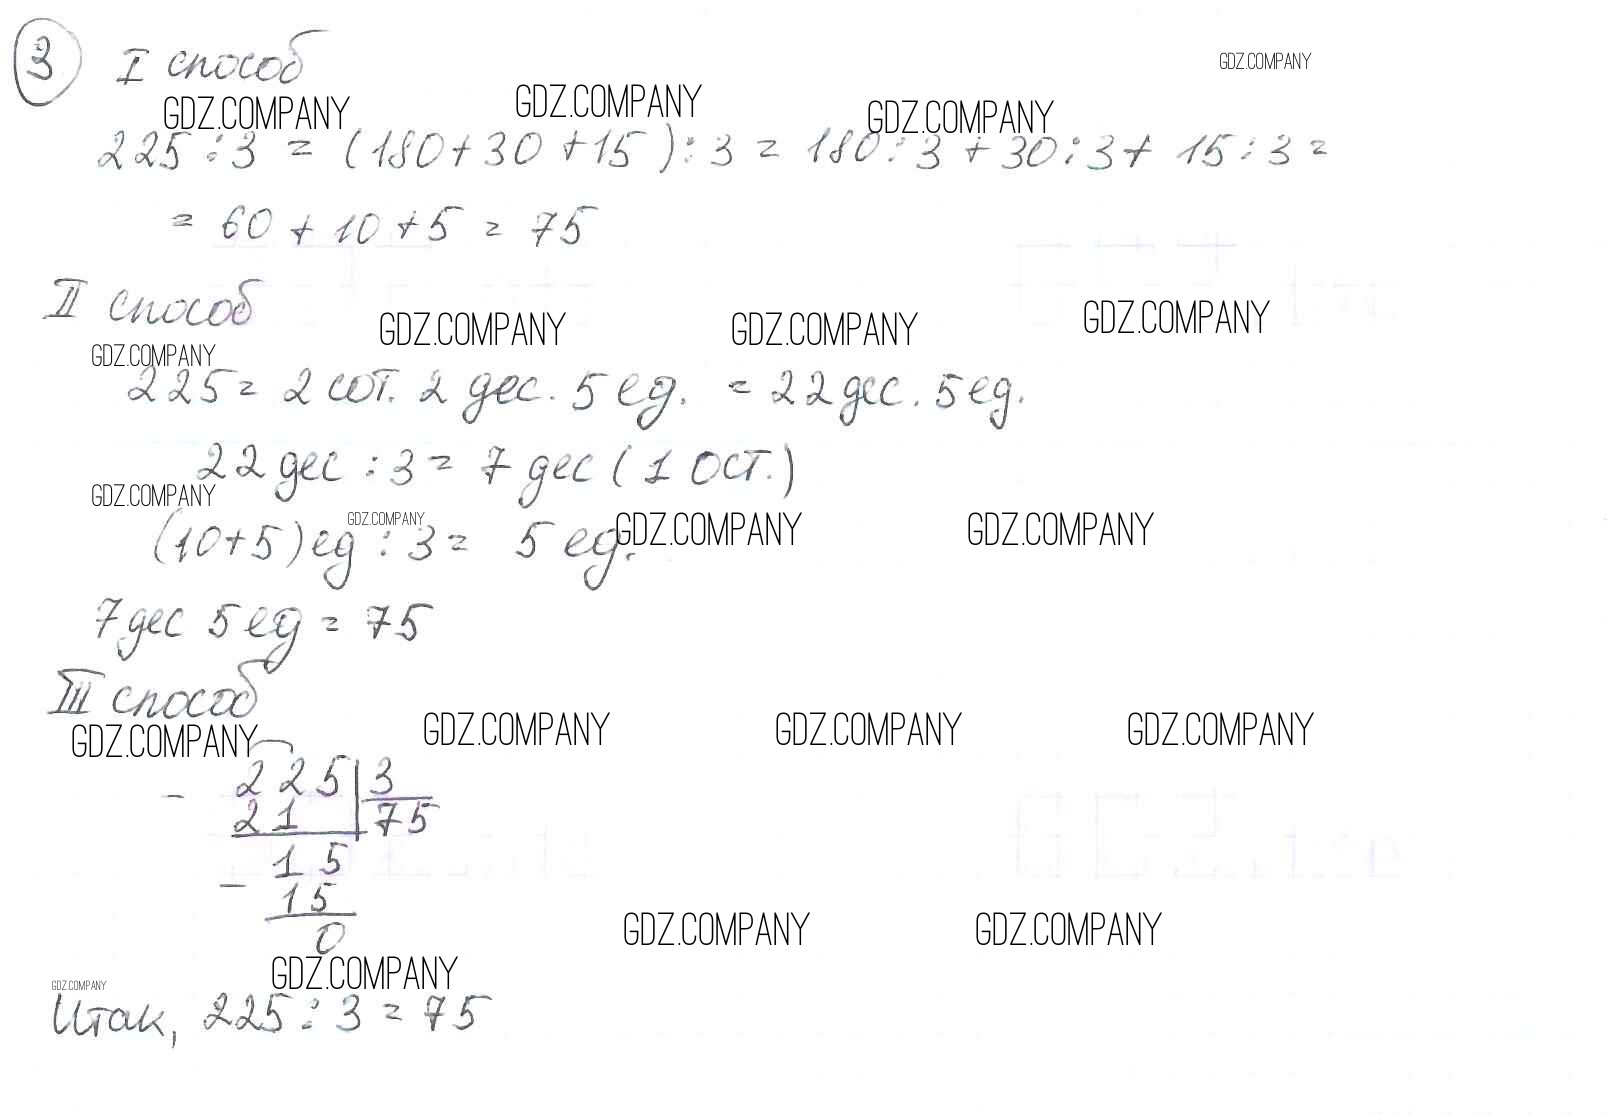 3 I способ
GDZ.COMPANY
GDZ.COMPANY GDZ.COMPANY GDZ.COMPANY
225 : 3 = (180 + 30 + 15) : 3 = 180 : 3 + 30 : 3 + 15 : 3 =
= 60 + 10 + 5 = 75
II способ
GDZ.COMPANY GDZ.COMPANY GDZ.COMPANY
GDZ.COMPANY
225 = 2 сот. 2 дес. 5 ед. = 22 дес. 5 ед.
22 дес : 3 = 7 дес (1 ост.)
GDZ.COMPANY
GDZ.COMPANY GDZ.COMPANY GDZ.COMPANY
(10+5) ед : 3 = 5 ед.
7 дес 5 ед = 75
III способ
GDZ.COMPANY GDZ.COMPANY GDZ.COMPANY GDZ.COMPANY
- 225 | 3
21 75
15
- 15
0
GDZ.COMPANY GDZ.COMPANY
GDZ.COMPANY
GDZ.COMPANY
Итак, 225 : 3 = 75